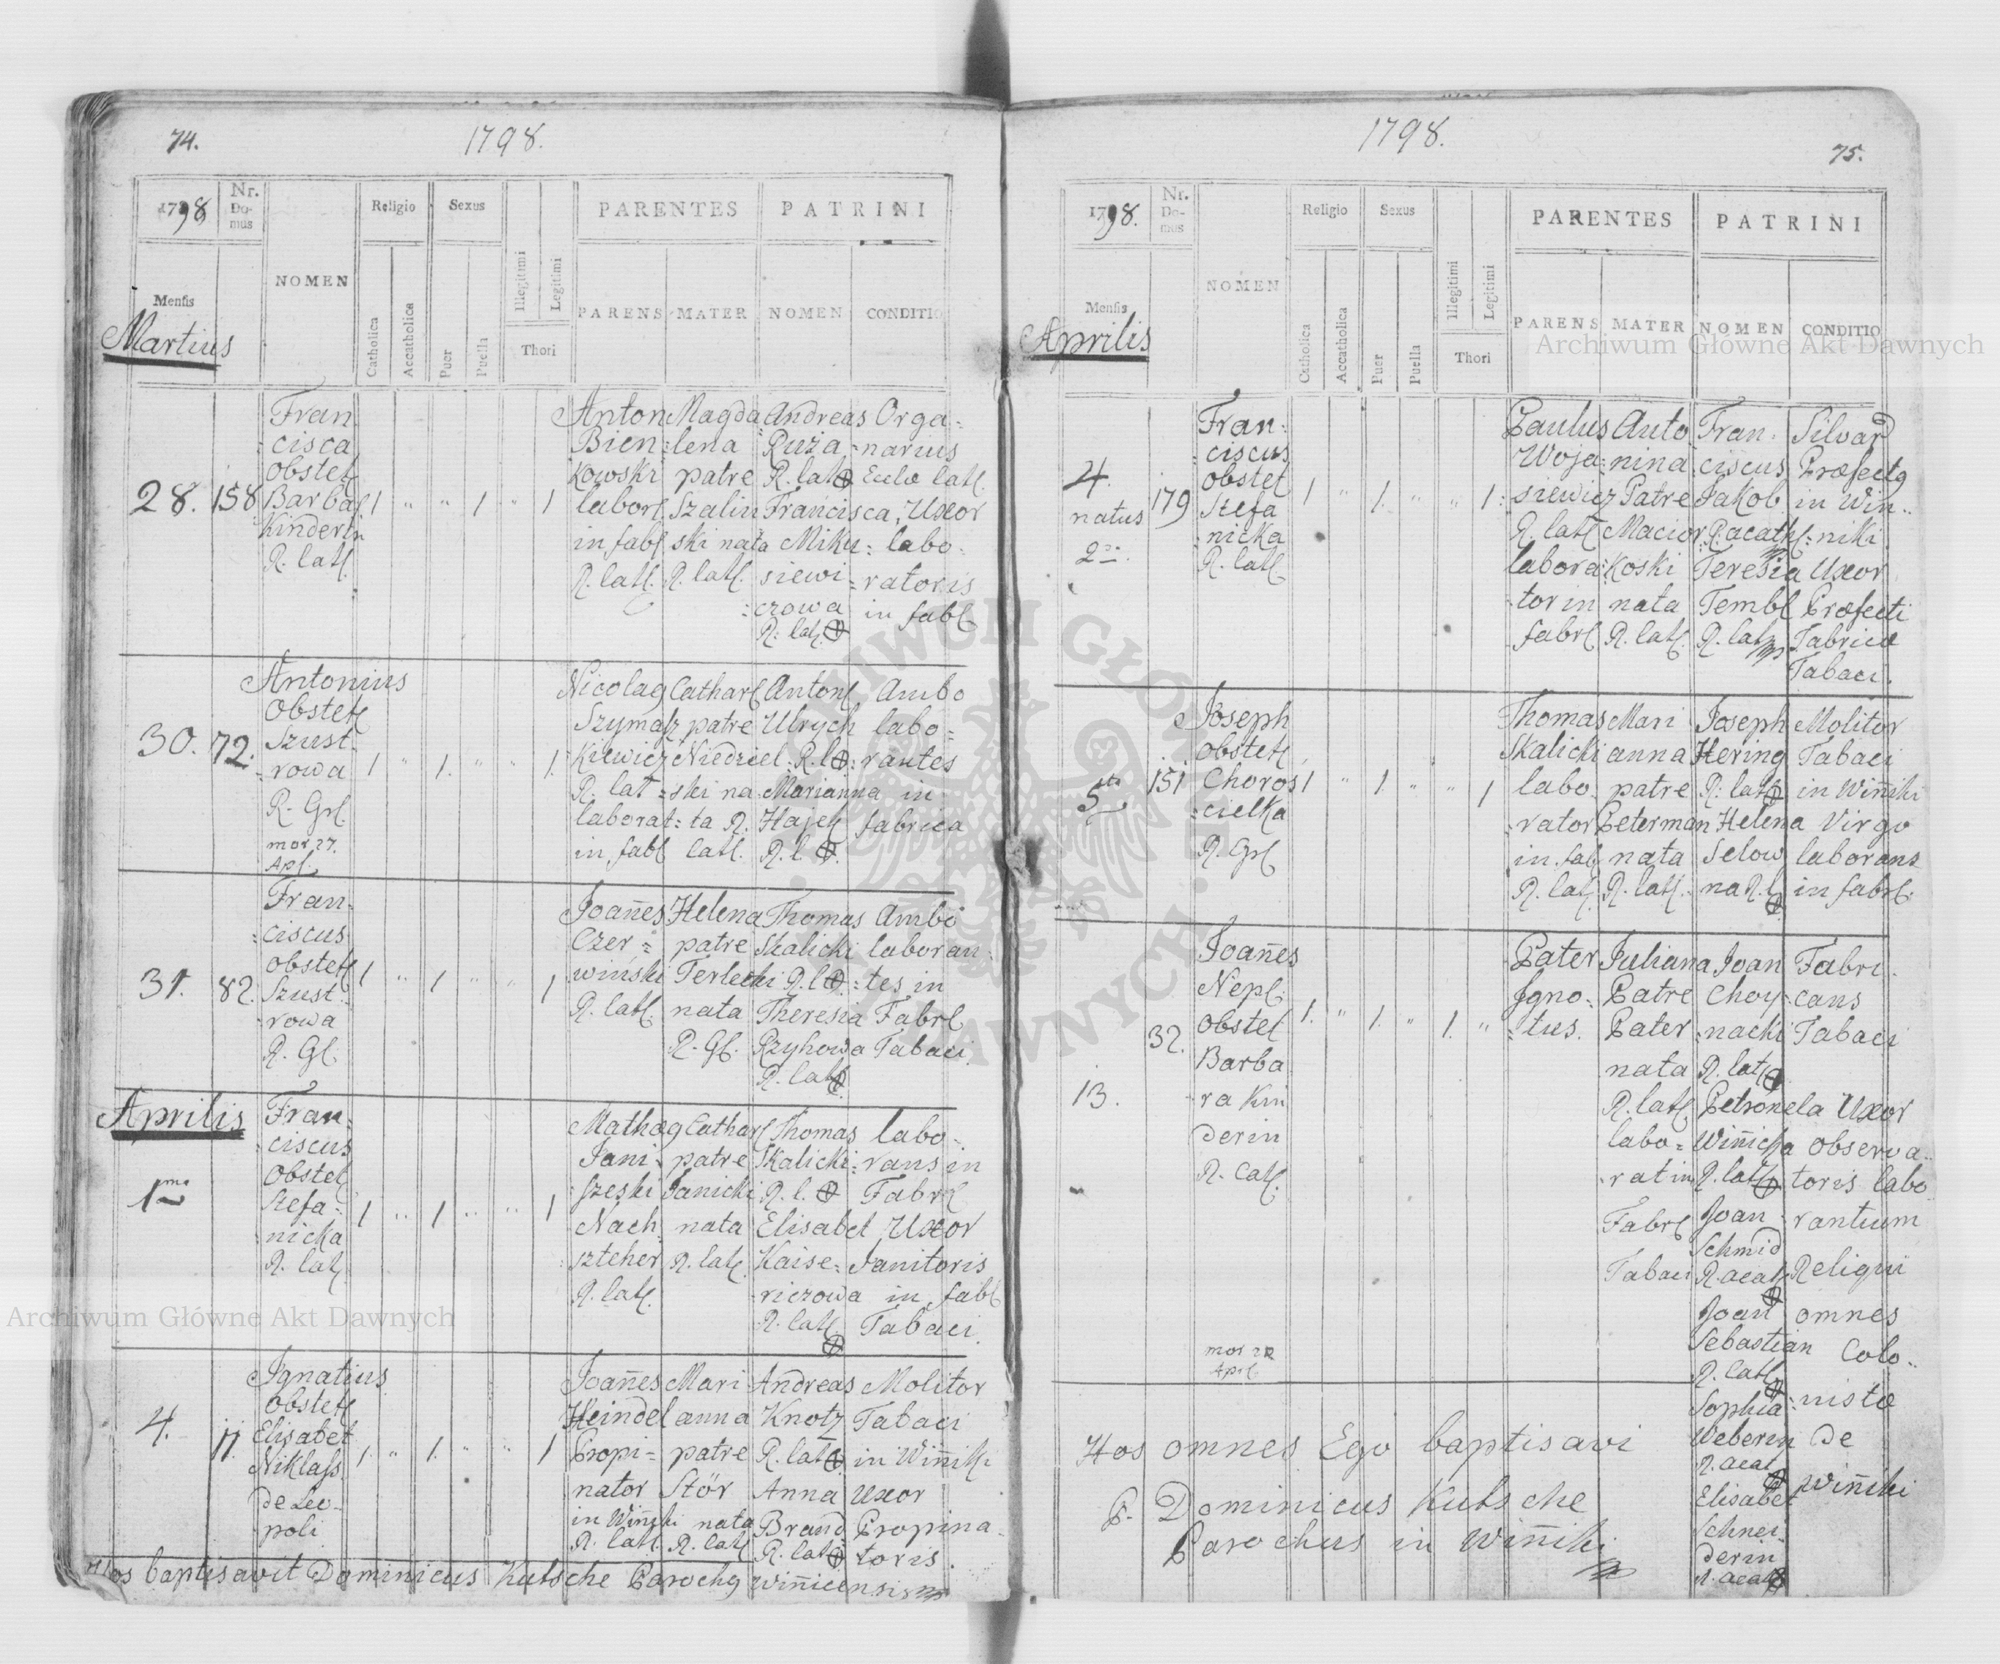 74.
1798.
1798
Nr. Domus
NOMEN
Religio
Sexus
PARENTES
PATRINI
Mensis
Martius
Catholica
Accatholica
Puer
Puella
Illegitimi
Legitimi
Thori
PARENS
MATER
NOMEN
CONDITIO
28.
158
Fran
cisca
obstet
Barba
Kinderin
R. lat.
1 " " 1 " 1
Anton
Bien
kowski
labor
in fab
R. lat.
Magda
lena
patre
Szalin
ski nata
R. lat.
Andreas
Ruża
R. lat
Francisca
Miku=
siewi
=czowa
R: lat.
Orga=
=narius
Eccle lat.
Uxor
labo=
ratoris
in fab
30.
72.
Antonius
Obstet
Szust
rowa
R. Gr.
mor 27.
Apr.
1 " 1. " " 1.
Nicolaq
Szymasz
kiewicz
R. lat
laborat
in fab
Cathar
patre
Niedziel
=ski na
=ta R.
Cat.
Anton
Ulrych
R. l.
Marianna
Hajek
R. l.
Ambo
labo=
rantes
in
fabrica
31.
82.
Fran=
=ciscus
obstet
Szust
rowa
R. G.
1 " 1 " " 1
Joañes
Czer=
wiński
R. lat.
Helena
patre
Terlecki
nata
R. G.
Thomas
Skalicki
R. l.
Theresia
Rzyhowa
R. lat
Ambo
laboran
=tes in
Fabr
Tabaci
Aprilis
1ma
Fran=
=ciscus
Obstet
Stefa=
nicka
R. lat
1 " 1 " " 1
Mathæq
Jani
szeski
Nach
szteher
R. lat.
Cathar
patre
Janicki
nata
R. lat.
Thomas
Skalicki
R. l.
Elisabet
Kaise=
riczowa
R. lat
labo=
rans in
Fabr
Uxor
Janitoris
in fab
Tabaci.
4.
11.
Ignatius
obstet
Elisabet
Niklass
de Leo-
poli
1. " 1. " " 1
Joañes
Heindel
Propi=
nator
in Wiñiki
R. lat.
Mari
anna
patre
Stör
nata
R. lat
Andreas
Knotz
R. lat
Anna
Brand
R. lat
Molitor
Tabaci
in Wiñik
uxor
Propina=
toris.
Hos baptisavit Dominicus Kutsche Parochq Wiñicensis
1798.
75.
1798.
Nr. Domus
NOMEN
Religio
Sexus
PARENTES
PATRINI
Mensis
Aprilis
Catholica
Accatholica
Puer
Puella
Illegitimi
Legitimi
Thori
PARENS
MATER
NOMEN
CONDITIO
4.
natus
2
179
Fran=
=ciscus
obstet
Stefa
=nicka
R. lat
1 " 1. " " 1.
Paulus
Woja
siewicz
R. lat
labora
tor in
fabr
Anto
=nina
Patre
Macior
koski
nata
R. lat.
Fran=
ciscus
Jakob
R. acath
Teresia
Tembl
R. lat
Silvar
Præfectq
in Win=
=niki
Uxor
Præfecti
Fabricæ
Tabaci.
5ta
151
Joseph
obstet
Choros
=cielka
R. Gr
1 " 1. " " 1
Thomas
Skalicki
labo
rator
in fab
R. lat
Mari
anna
patre
Peterman
nata
R. lat.
Joseph
Hering
R: lat
Helena
Selow
na R. l
Molitor
Tabaci
in Wiñiki
Virgo
laborans
in fabr.
13.
32.
Joañes
Nep.
Obstet
Barba
ra Kin
derin
R. Cat.
mor 22
Apr
1. " 1. " 1. "
Pater
Igno=
=tus.
Juliana
Patre
Pater
nata
R. lat
labo=
rat in
Fabr
Tabaci
Joan
Choy=
nacki
R. lat
Petronela
Wiñicka
R. lat
Joan
Schmid
R. acat
Joan
Sebastian
R. Cat
Sophia
Weberin
R. acat
Elisabet
Schnei
derin
R. acat
Fabri=
cans
Tabaci
Uxor
observa=
toris labo
rantium
Religui
omnes
Colo=
=nistæ
de
Wiñiki
Hos omnes Ego baptisavi
P. Dominicus Kutsche
Parochus in Wiñiki
Archiwum Główne Akt Dawnych
Archiwum Główne Akt Dawnych